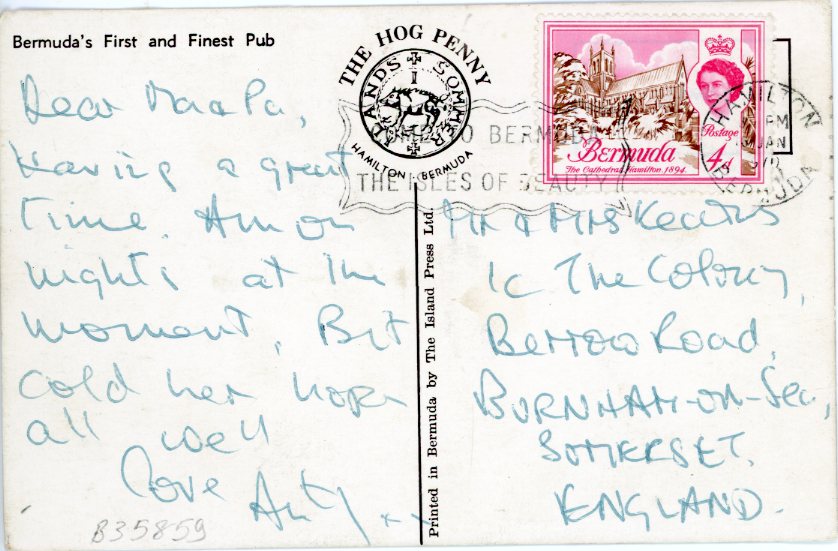 Bermuda's First and Finest Pub
Dear Ma & Pa,
Having a great
time. Am on
nights at the
moment, Bit
cold here hope
all well
Love
B35859
THE HOG PENNY
ISLANDS SOMMER
HAMILTON BERMUDA
TO BERMUDA
THE ISLES OF BEAUTY
Postage
Bermuda
4d
The Cathedral, Hamilton 1894
HAMILTON
PM
JAN
BERMUDA
Printed in Bermuda by The Island Press Ltd.
Mr & Mrs
1c The Colony,
Berrow Road,
BURNHAM-ON-Sea,
SOMERSET.
ENGLAND.